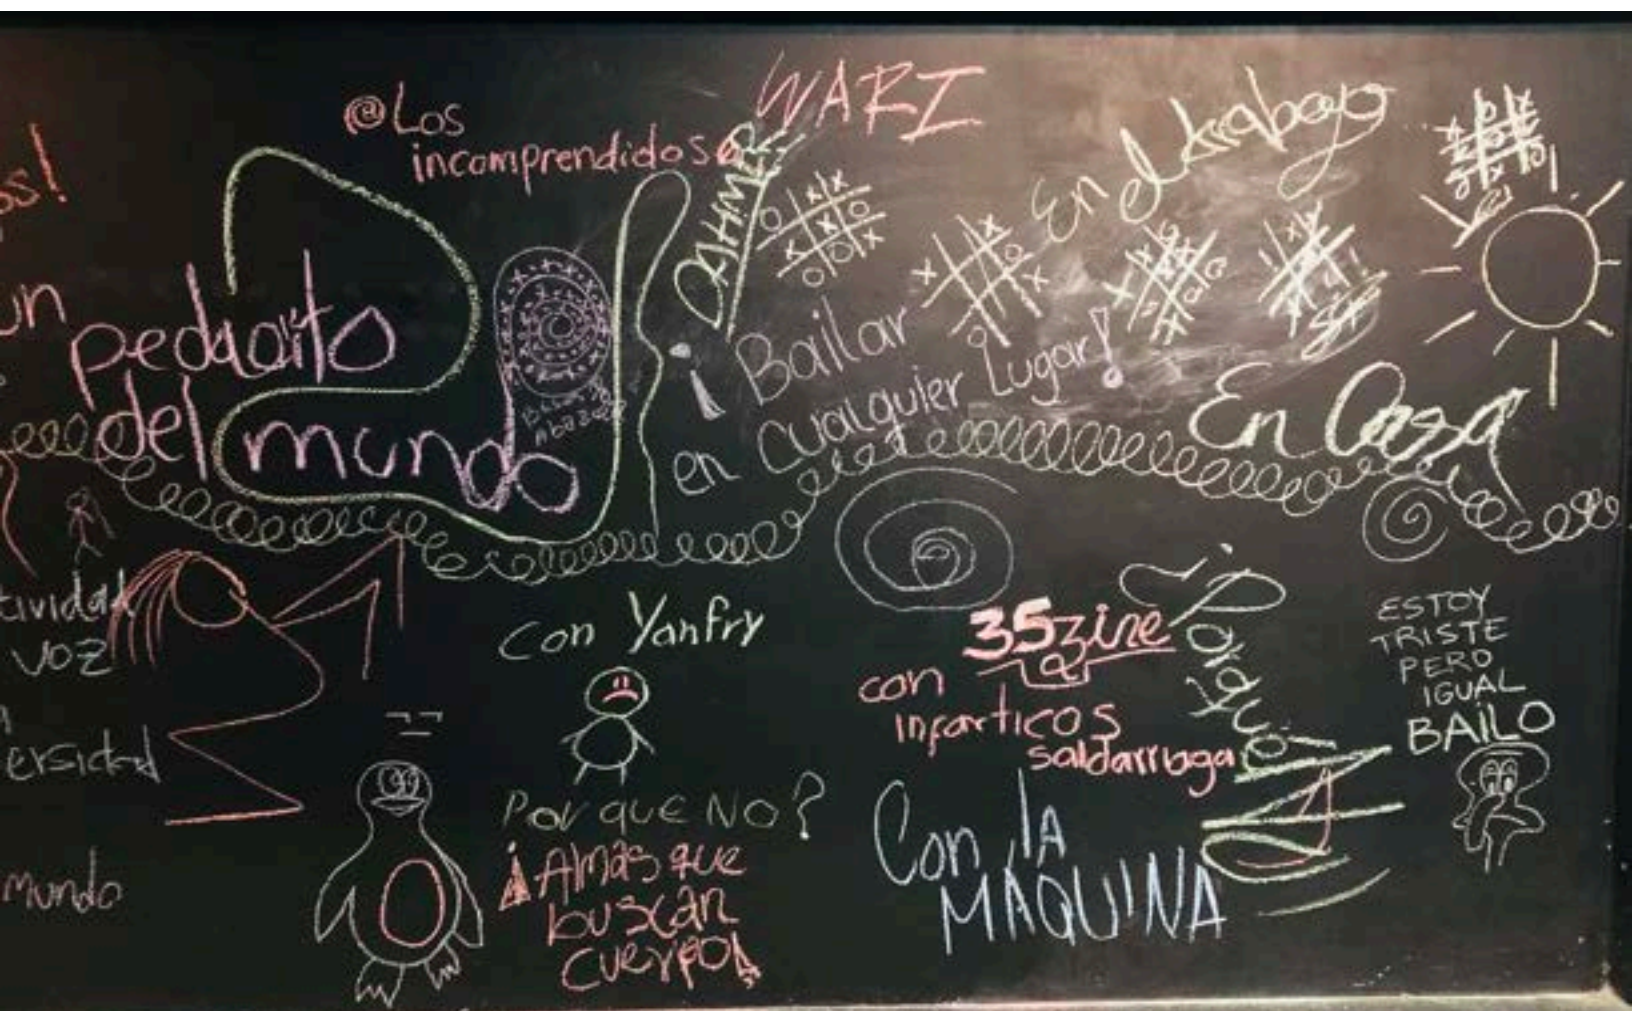 @Los
incomprendidos
WARI
DAHMER
En el trabajo
un
pedacito
del mundo
¡Bailar
en cualquier Lugar!
En Casa
tividad
voz
ersidad
mundo
con Yanfry
Por que NO?
¡Almas que
buscan
cuerpo!
35zine
con
infarticos
saldarriaga
¿Por qué
Con la
MÁQUINA
ESTOY
TRISTE
PERO
IGUAL
BAILO